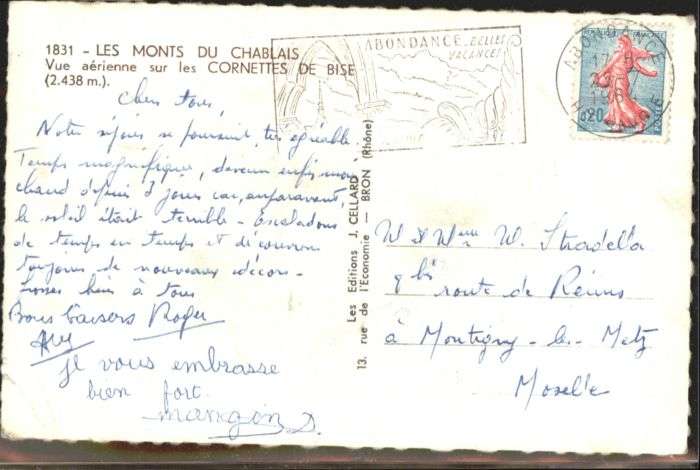 1831 - LES MONTS DU CHABLAIS
Vue aérienne sur les CORNETTES DE BISE
(2.438 m.).
Chers tous
Notre séjour se poursuit, très agréable
Temps magnifique, devenu enfin moins
chaud depuis 3 jours car, auparavant,
le soleil était terrible - Escaladons
de temps en temps et découvrons
toujours de nouveaux décors -
heures à tous
Bons baisers Roger
je vous embrasse
bien fort
mangin D.
Les Editions J. CELLARD
13, rue de l'Economie — BRON (Rhône)
ABONDANCE BELLES
VACANCES
ABONDANCE
0,20
POSTES
M et Mme W. Stradella
9 bis route de Reims
à Montigny-les-Metz
Moselle